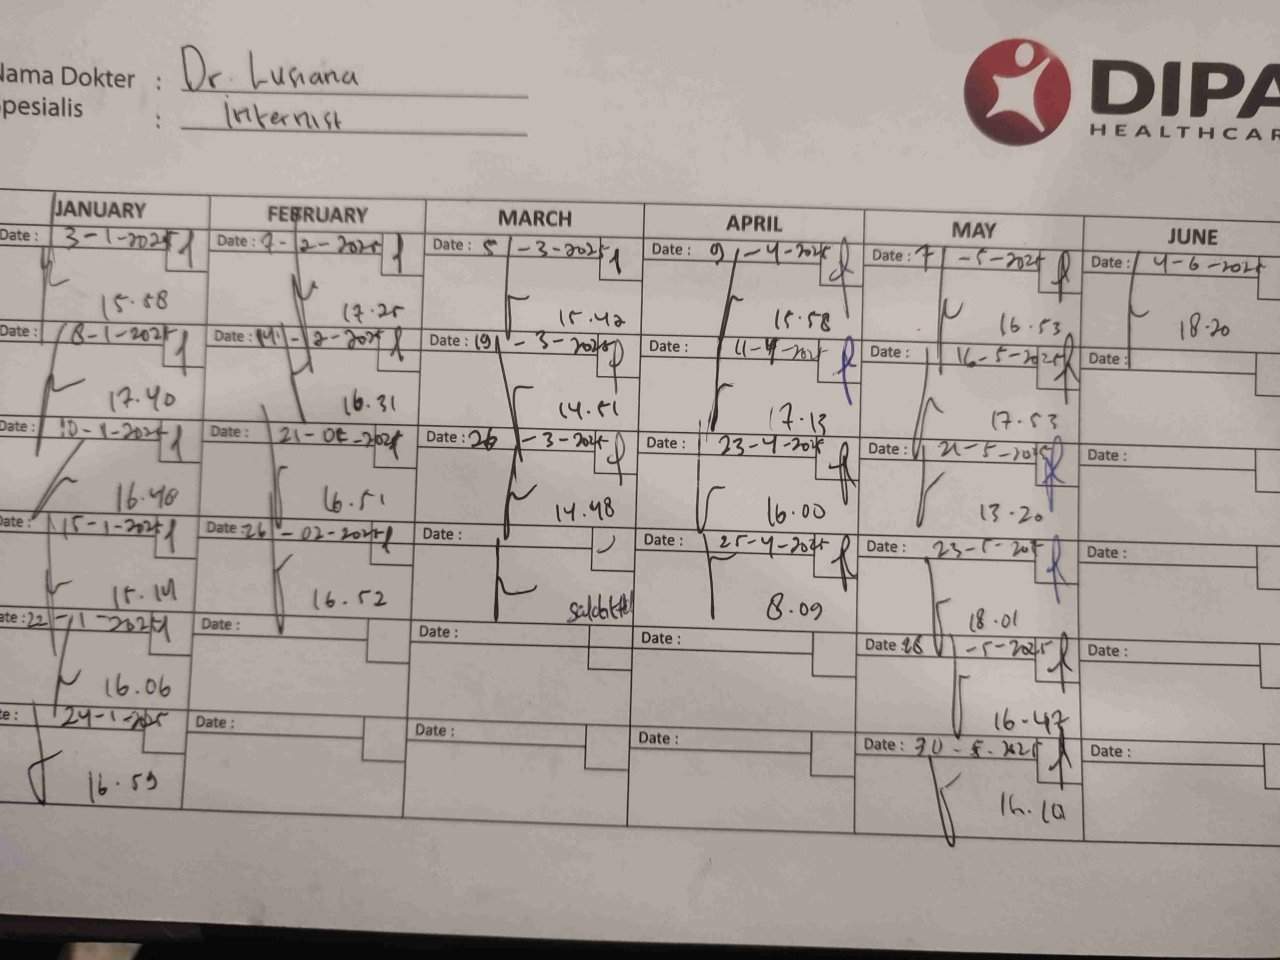 Nama Dokter : Dr. Lusiana
Spesialis : Internist
DIPA
HEALTHCAR
JANUARY FEBRUARY MARCH APRIL MAY JUNE
Date : 3-1-2025 Date : 7-2-2025 Date : 5-3-2025 Date : 9-4-2025 Date : 7-5-2025 Date : 4-6-2025
15.58 17.25 15.42 15.58 16.53 18.20
Date : 8-1-2025 Date : 14-2-2025 Date : 19-3-2025 Date : 11-4-2025 Date : 16-5-2025 Date :
17.40 16.31 14.51 17.13 17.53
Date : 10-1-2025 Date : 21-02-2025 Date : 26-3-2025 Date : 23-4-2025 Date : 21-5-2025 Date :
16.40 16.51 14.48 16.00 13.20
Date : 15-1-2025 Date : 26-02-2025 Date : Date : 25-4-2025 Date : 23-5-2025 Date :
15.14 16.52 8.09 18.01
Date : 22-1-2025 Date : Date : Date : Date : 28-5-2025 Date :
16.06 16.47
Date : 24-1-2025 Date : Date : Date : Date : 30-5-2025 Date :
16.59 16.10